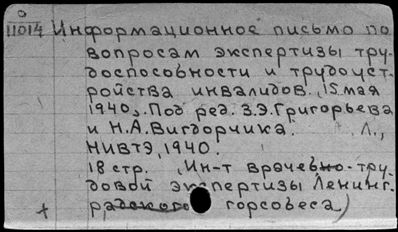 11014 Информационное письмо по
вопросам экспертизы тру-
доспособности и трудоуст-
ройства инвалидов. 15 мая
1940г. Под ред. З.Э.Григорьева
и Н.А.Вигдорчика. Л.,
НИВТЭ, 1940.
18 стр. (Ин-т врачебно-тру-
довой экспертизы Ленинг-
радского горсовеса)